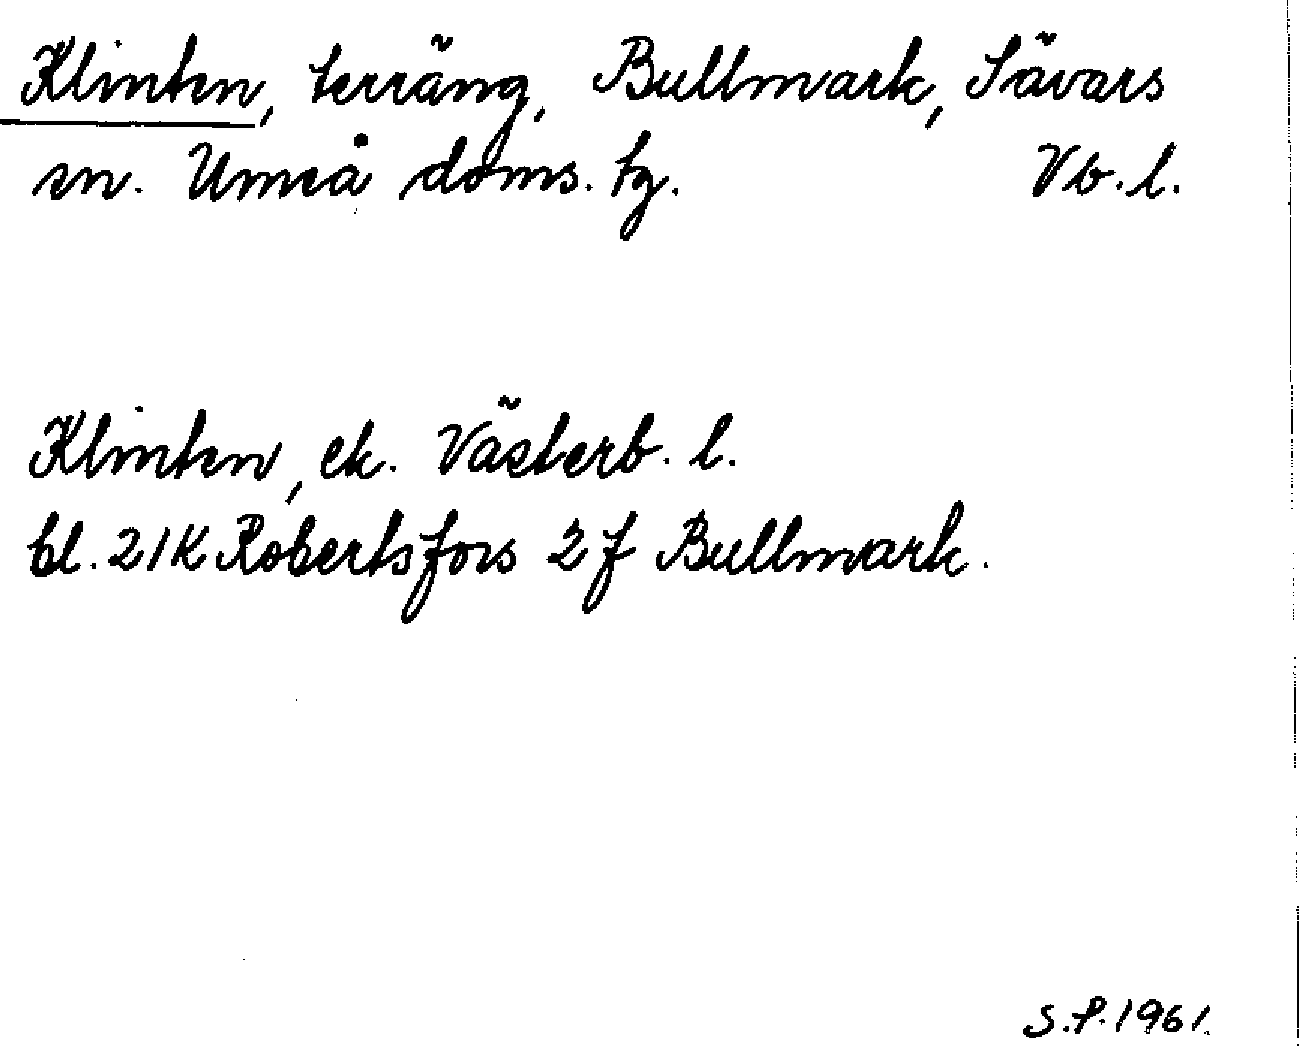 Klinten, terräng, Bullmark, Sävars
sn. Umeå doms. tg. Vb. l.
Klinten, ek. Västerb. l.
bl. 21K Robertsfors 2f Bullmark.
S.P. 1961.